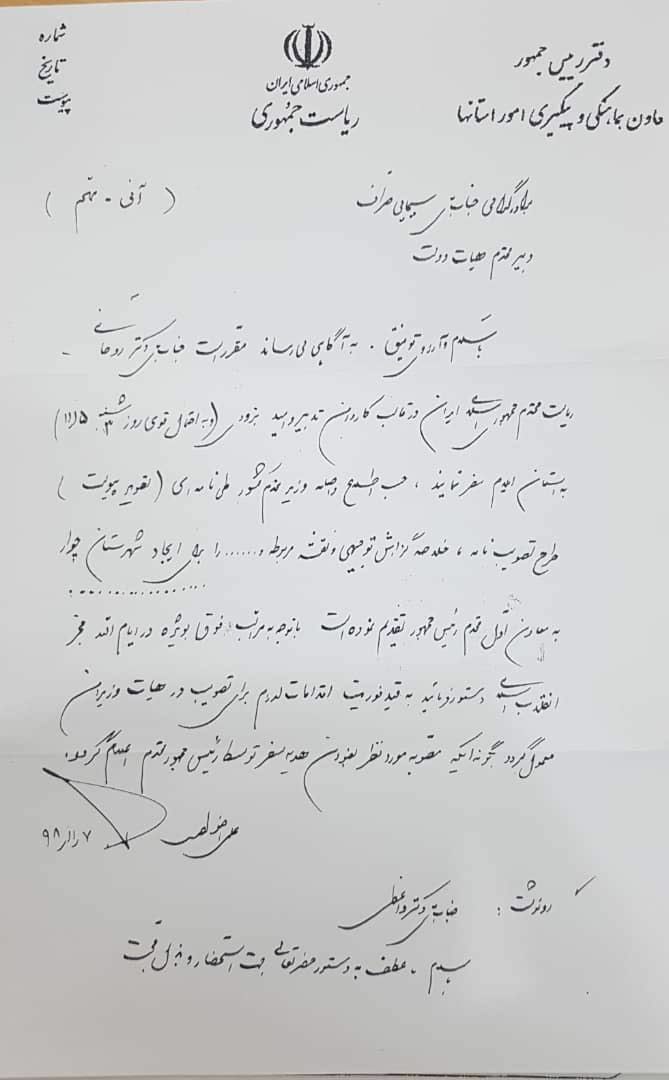 شماره
تاریخ
پیوست
جمهوری اسلامی ایران
ریاست جمهوری
دفتر رییس جمهور
معاون هماهنگی و پیگیری امور استانها
برادر گرامی جناب آقای سیمایی صراف ( آنی - مهم )
دبیر محترم هیات دولت
با سلام و آرزوی توفیق . به آگاهی می رساند مقرر است جناب آقای دکتر روحانی
ریاست محترم جمهوری اسلامی ایران در قالب کاروان تدبیر و امید بزودی (و به احتمال قوی روز ۳شنبه ۱۱/۱۵)
به استان ایلام سفر نمایند ، حسب اطلاع واصله وزیر محترم کشور طی نامه ای ( تصویر پیوست )
طرح تصویب نامه ، خلاصه گزارش توجیهی و نقشه مربوطه و...... را برای ایجاد شهرستان چوار
به معاون اول محترم رئیس جمهور تقدیم نموده است با توجه به مراتب فوق بویژه در ایام الله فجر
انقلاب اسلامی دستور فرمائید به قید فوریت اقدامات لازم برای تصویب در هیات وزیران
معمول گردد بگونه ایکه مصوبه مورد نظر بعنوان هدیه سفر توسط رئیس جمهور محترم اعلام گردد.
علی ۹۸/۱۱/۷
رونوشت : جناب آقای دکتر واعظی
با سلام ، عطف به دستور حضرتعالی جهت استحضار و